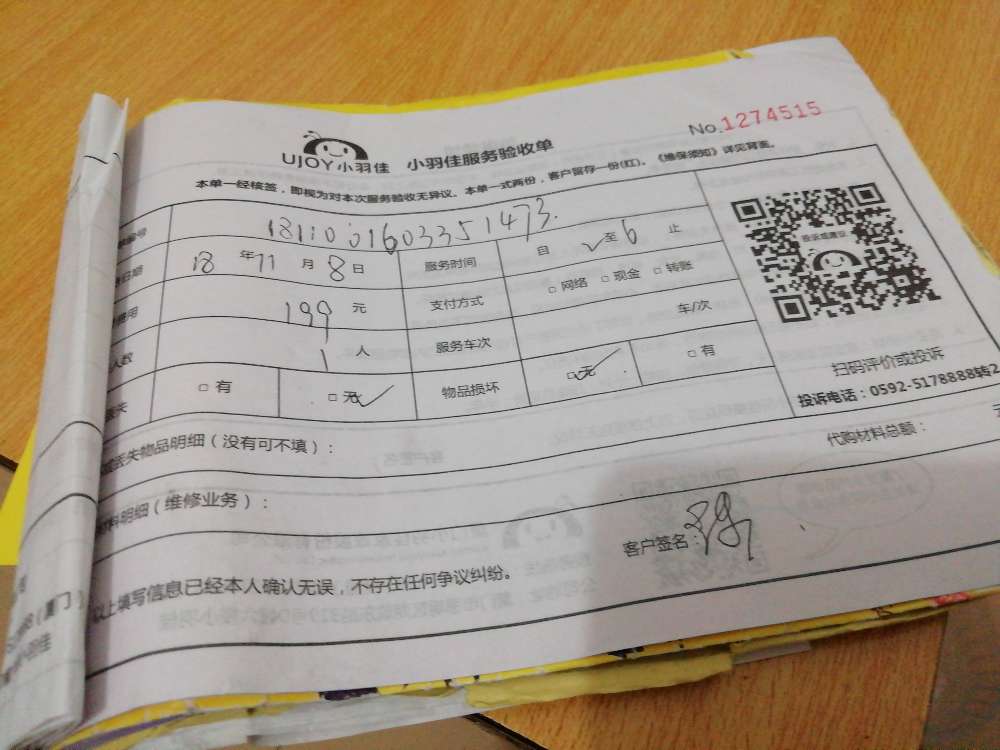 No.1274515
UJOY小羽佳 小羽佳服务验收单
本单一经核签，即视为对本次服务验收无异议。本单一式两份，客户留存一份(红)。《维保须知》详见背面。
编号 1811001603351473
日期 18 年 11 月 8 日 服务时间 自 2 至 6 止
费用 199 元 支付方式 □ 网络 □ 现金 □ 转账
人数 1 人 服务车次 车/次
□ 有 □ 无 物品损坏 □ 无 □ 有
投诉或建议
扫码评价或投诉
投诉电话：0592-5178888转2
丢失物品明细（没有可不填）：
料明细（维修业务）： 代购材料总额：
以上填写信息已经本人确认无误，不存在任何争议纠纷。 客户签名：